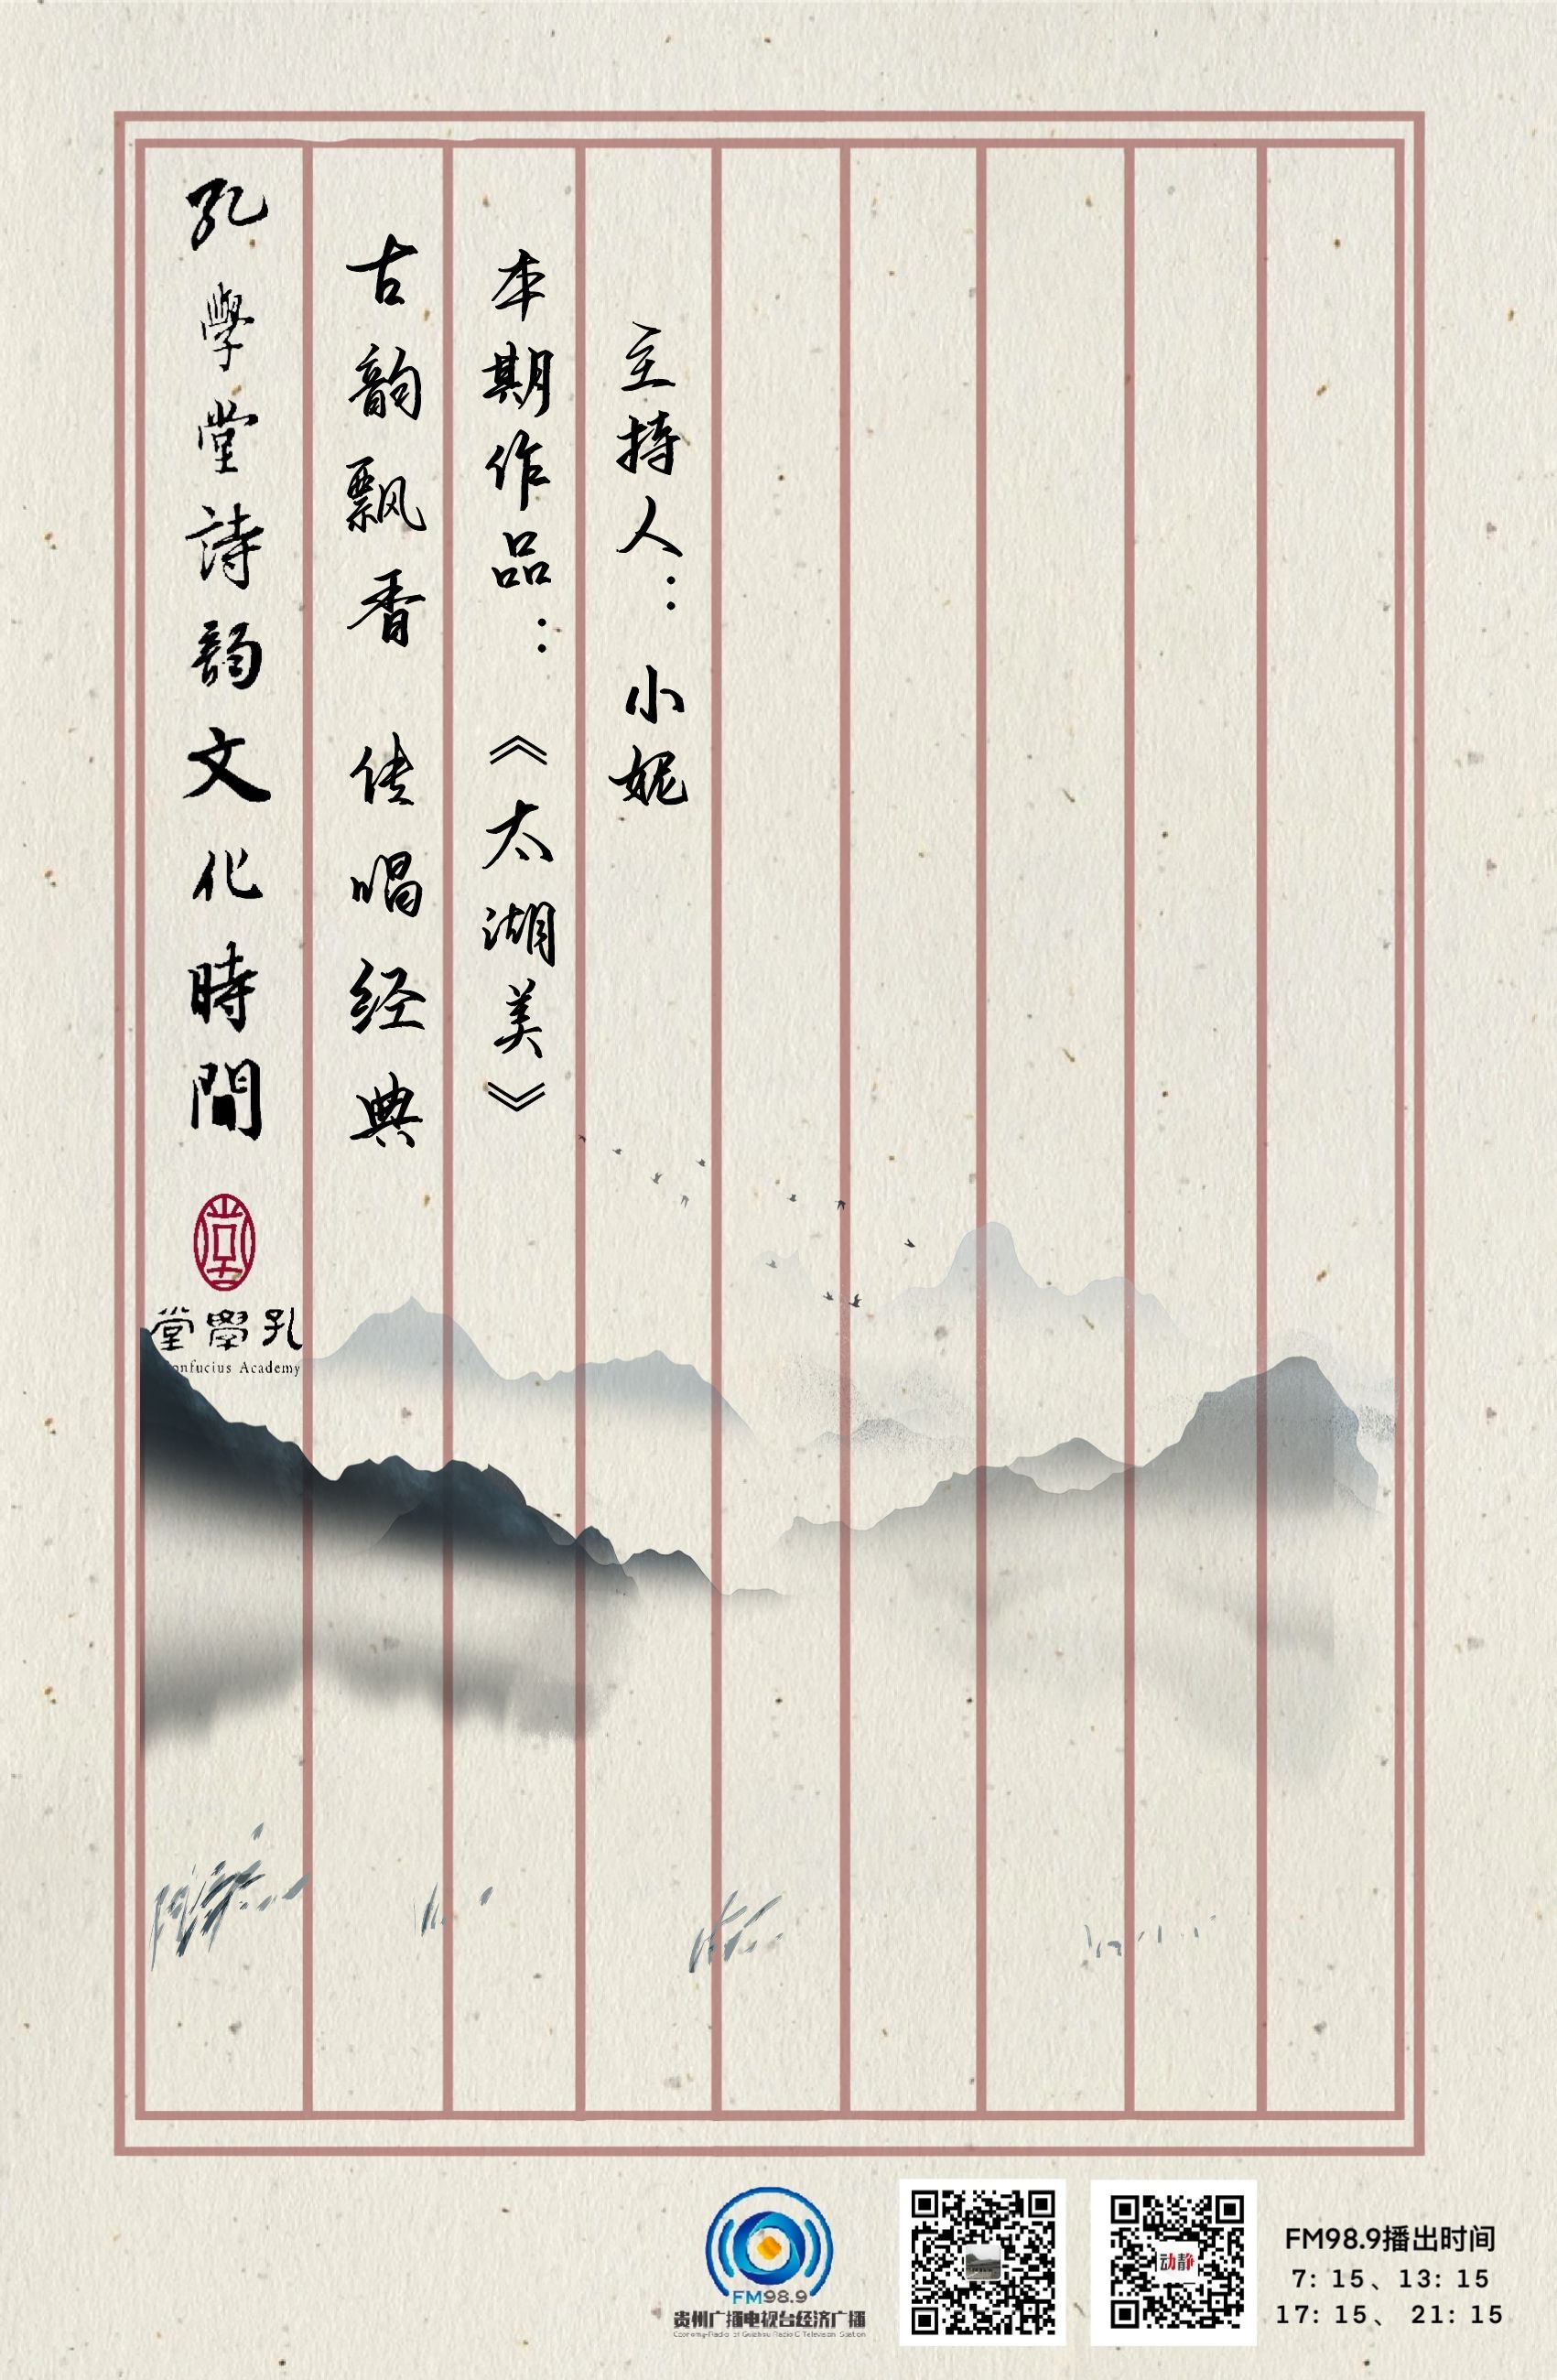 孔學堂詩韵文化時間
古韵飘香 传唱经典
本期作品：《太湖美》
主持人：小妮
堂學孔
onfucius Academy
FM98.9
贵州广播电视台经济广播
动静
FM98.9播出时间
7: 15、13: 15
17: 15、 21: 15